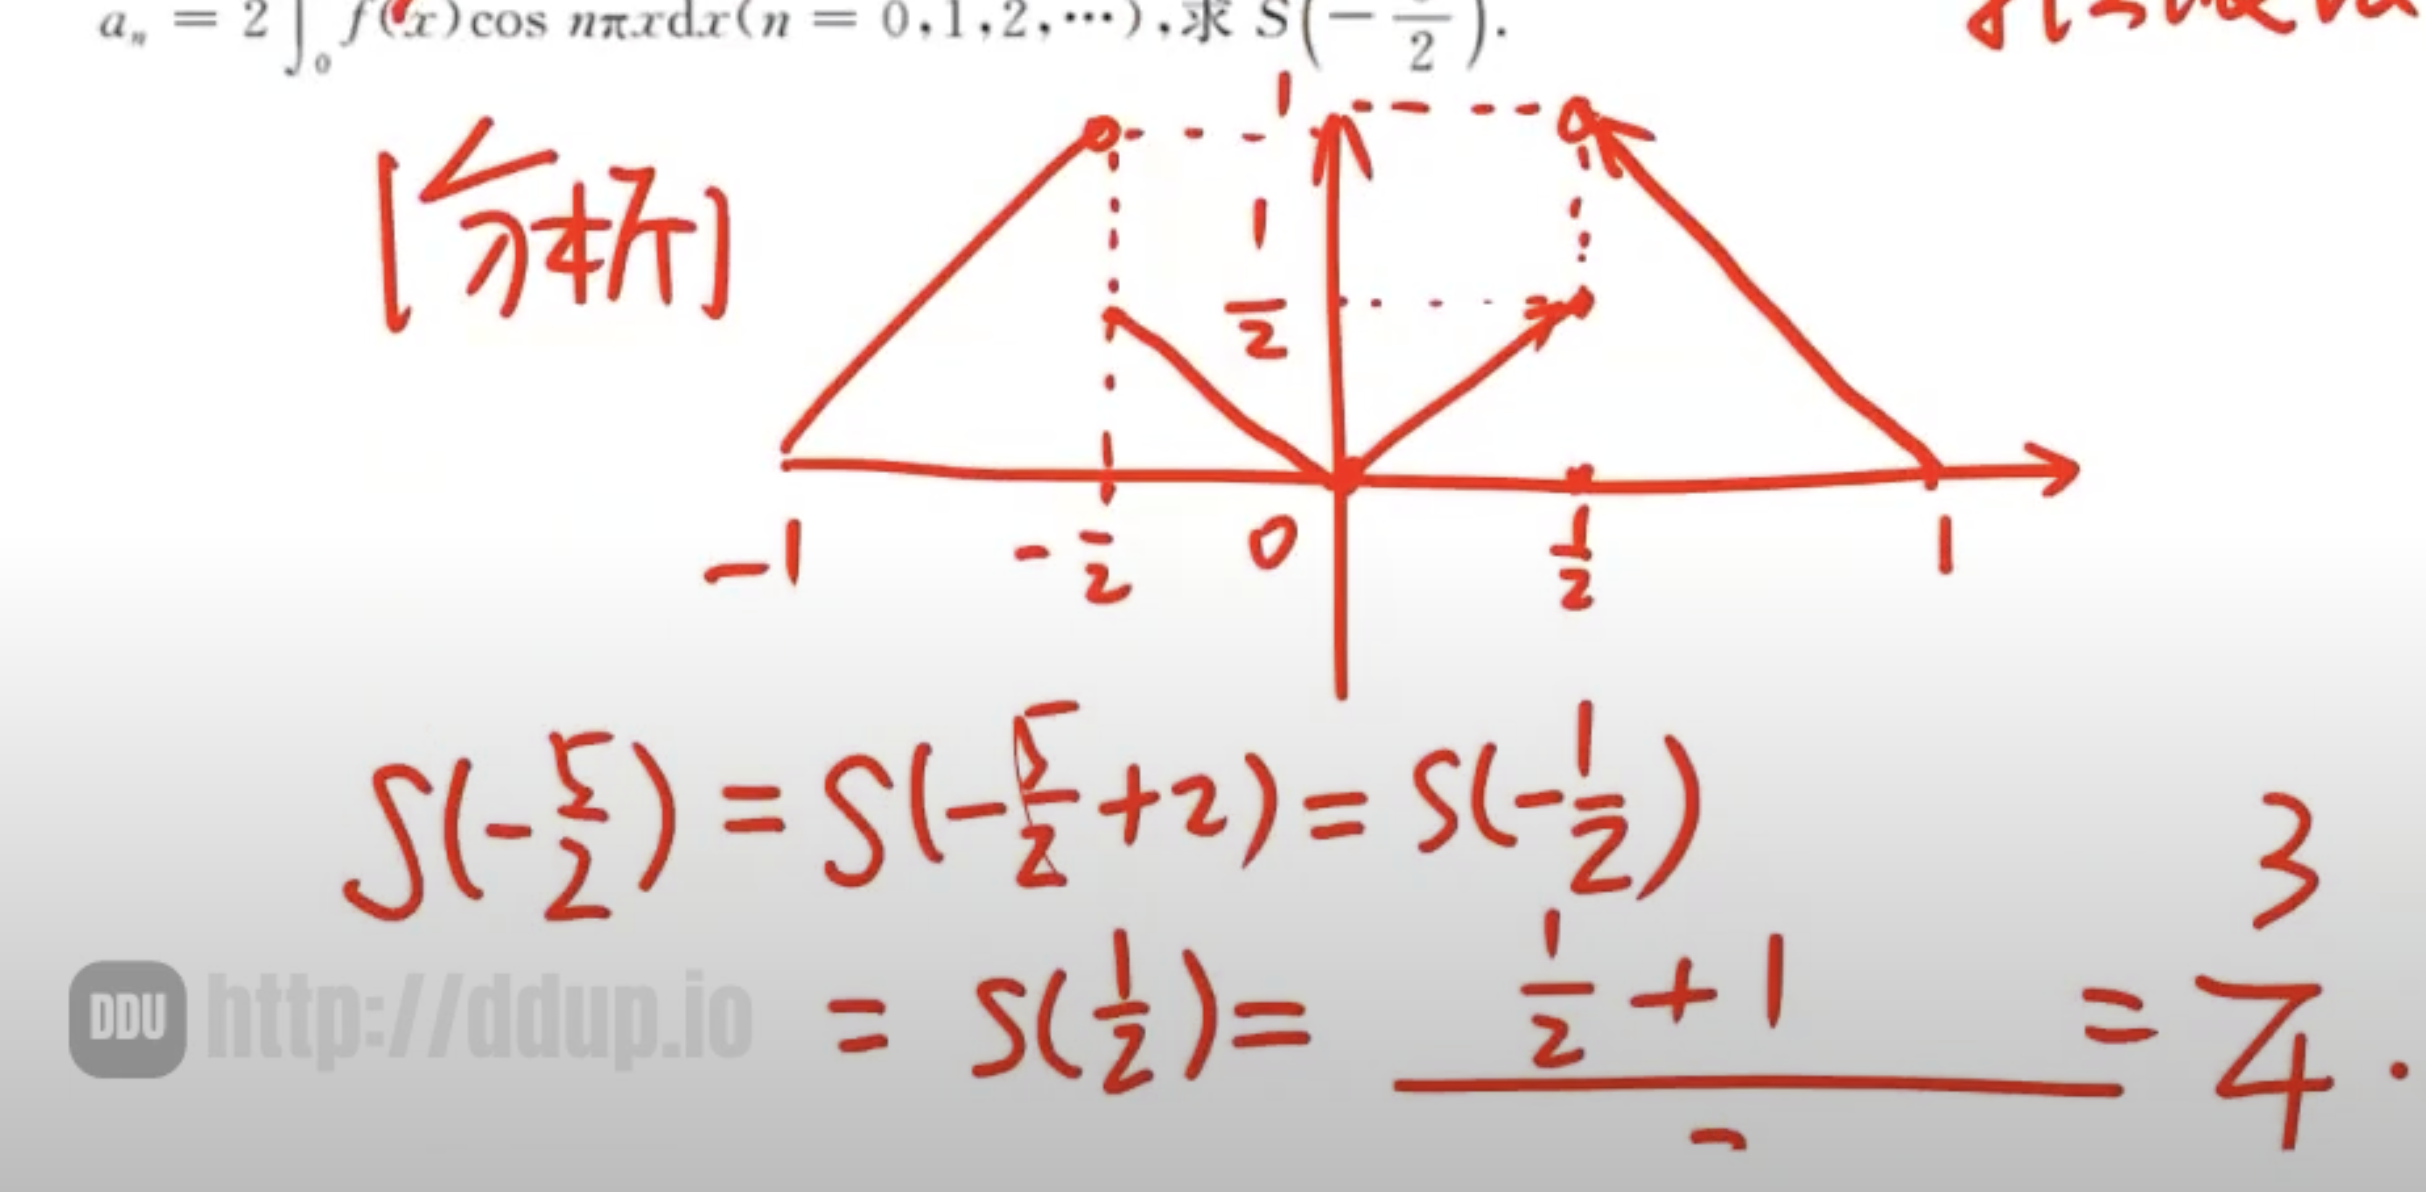 aₙ = 2∫₀ f(x)cos nπxdx(n = 0,1,2,⋯),求 S(−  /2).
[分析]
1
1/2
-1  -  /2  0  1/2  1
S(-5/2) = S(-5/2+2) = S(-1/2)
= S(1/2) = (1/2+1)/  = 3/4.
DDU http://ddup.io